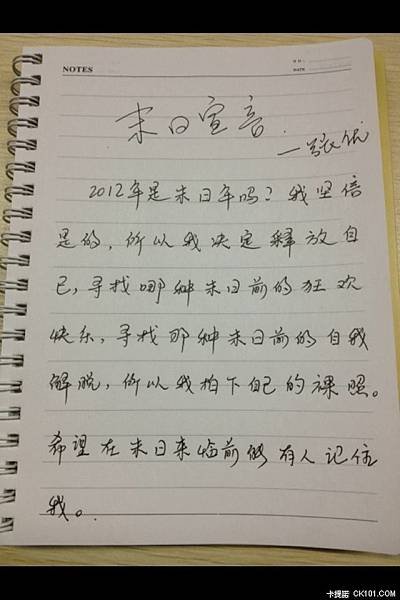 NOTES
DATE
末日宣音
—张优
2012年是末日年吗?我坚倍
是的,所以我决定释放自
己,寻找哪种末日前的狂欢
快乐,寻找那种末日前的自我
解脱,所以我拍下自己的裸照。
希望在末日来临前能有人记住
我。
卡提諾 CK101.COM